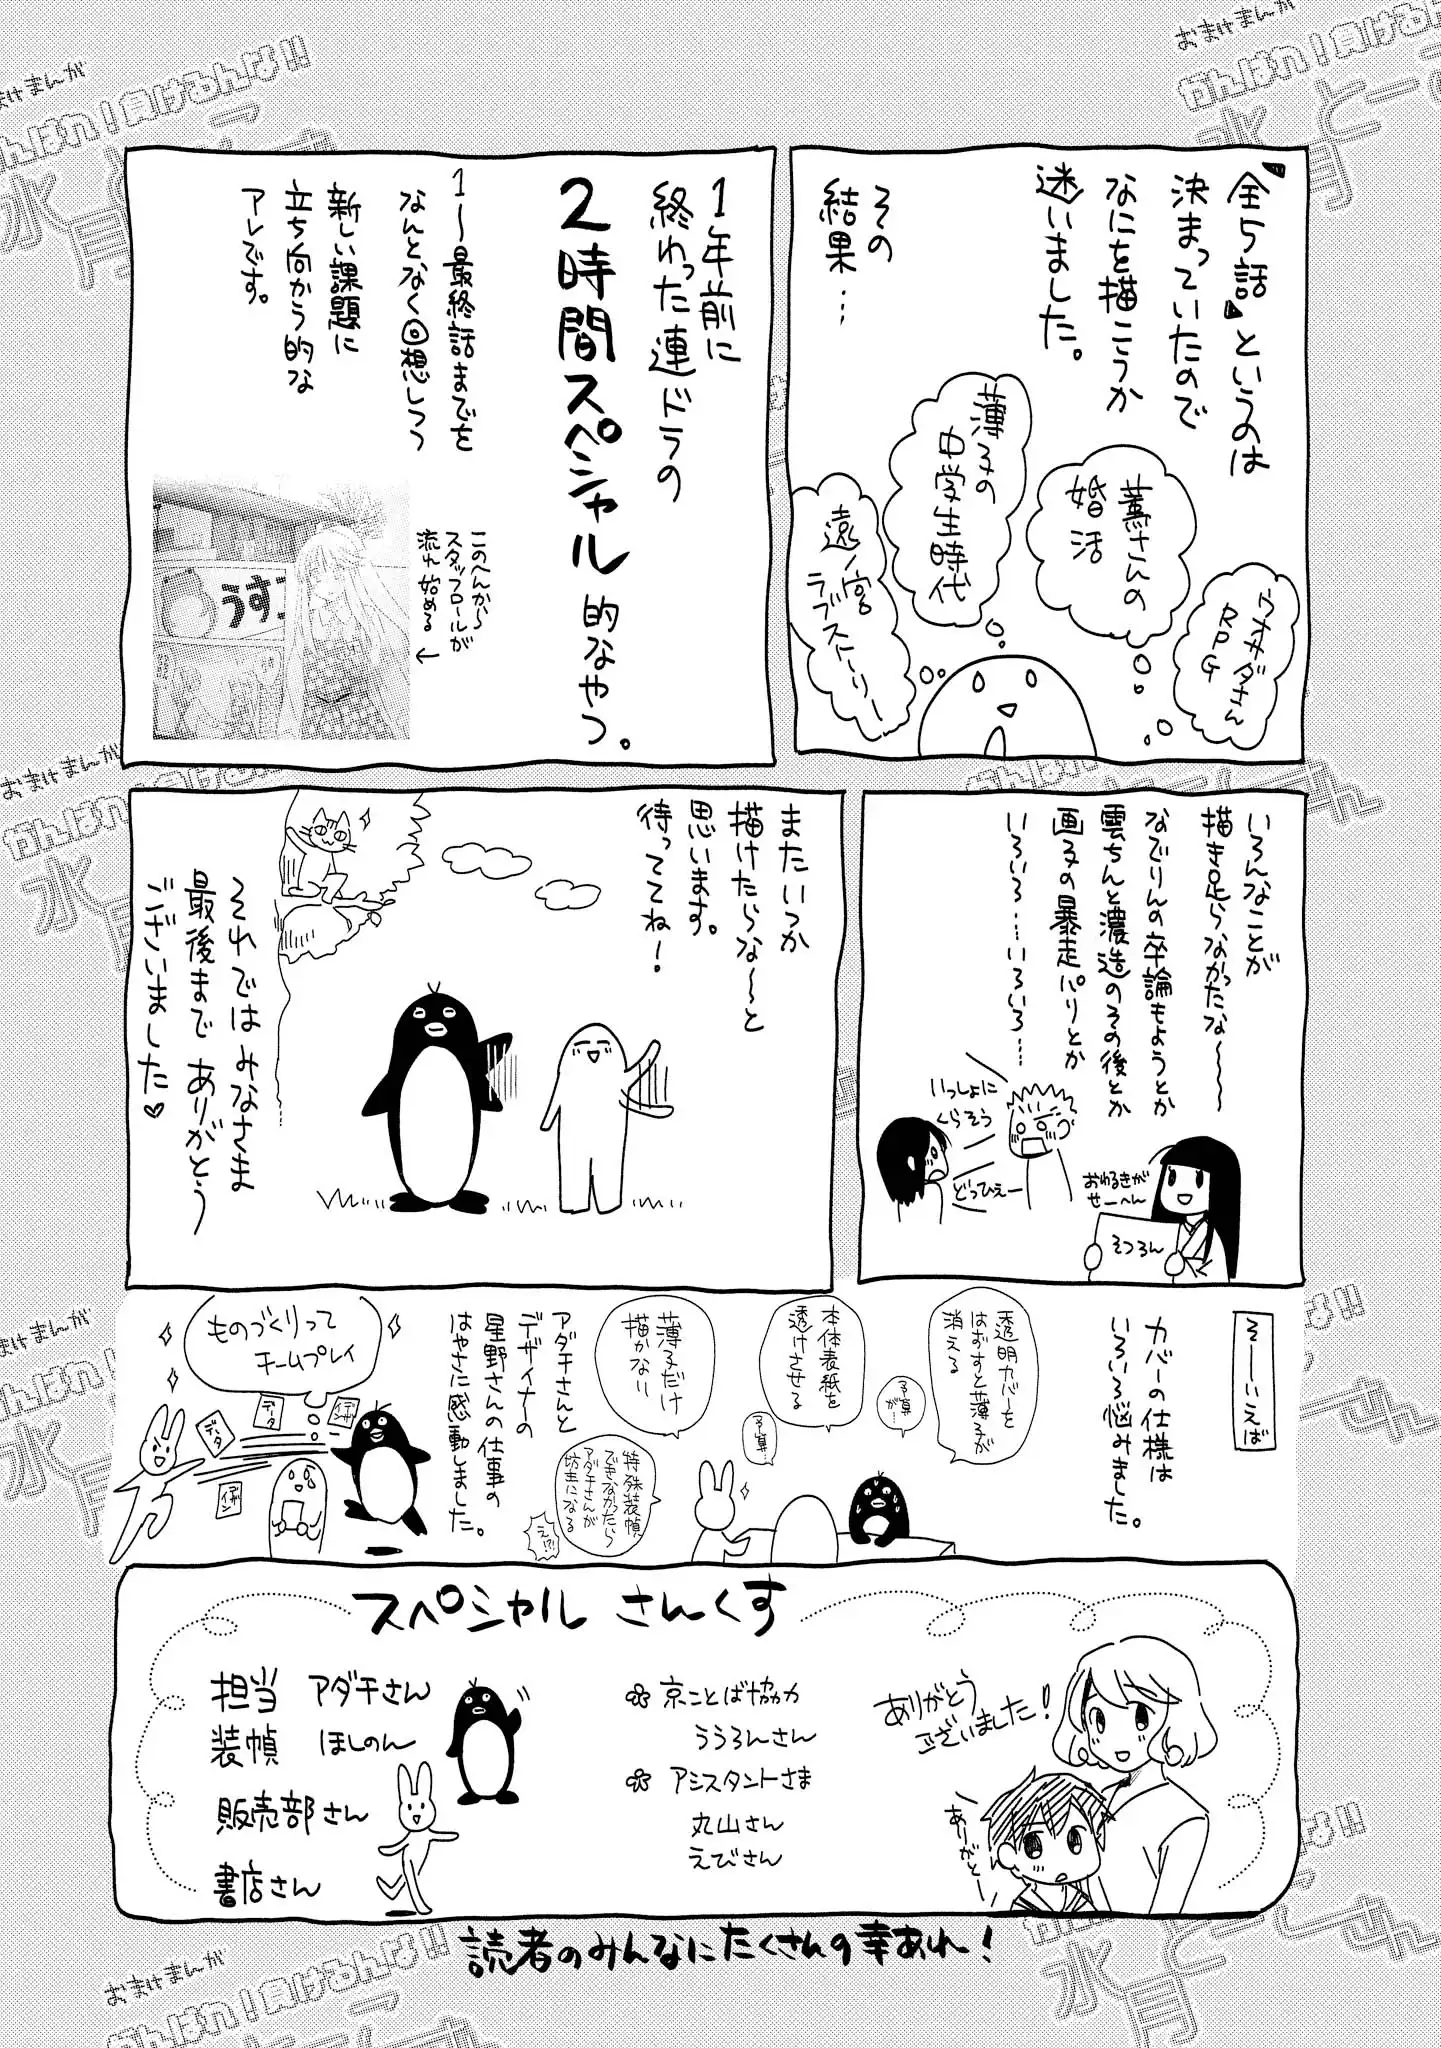 "全5話"というのは
決まっていたので
なにを描こうか
迷いました。
その
結果…
ウオノダさん
RPG
薫さんの
婚活
薄子の
中学生時代
遠ノ宮
ラブストーリー
1年前に
終わった連ドラの
2時間スペシャル的なやつ。
1～最終話までを
なんとなく回想しつつ
新しい課題に
立ち向かう的な
アレです。
このへんから
スタッフロールが
流れ始める
←
うすこ
いろんなことが
描き足らなかったな～～
なでりんの卒論もようとか
雲ちんと濃造のその後とか
画子の暴走パリとか
いろいろ…いろいろ…
いっしょに
くらそう
どっひぇー
おわるきが
せーへん
そつろん
またいつか
描けたらな～～と
思います。
待っててね！
それではみなさま
最後まで ありがとう
ございました♡
そーいえば
カバーの仕様は
いろいろ悩みました。
透明カバーを
はずすと薄子が
消える
予算
が…
本体表紙を
透けさせる
予算…
薄子だけ
描かない
特殊装幀
できなかったら
アダチさんが
坊主になる
え!?
アダチさんと
デザイナーの
星野さんの仕事の
はやさに感動しました。
ものづくりって
チームプレイ
データ
データ
デザイン
デザイン
スペシャル さんくす
担当 アダチさん
装幀 ほしのん
販売部さん
書店さん
京ことば協力
うぅろんさん
アシスタントさま
丸山さん
えびさん
ありがとう
ございました！
あーがと
読者のみんなにたくさんの幸あれ！
おまけまんが
がんばれ！負けるんな!!